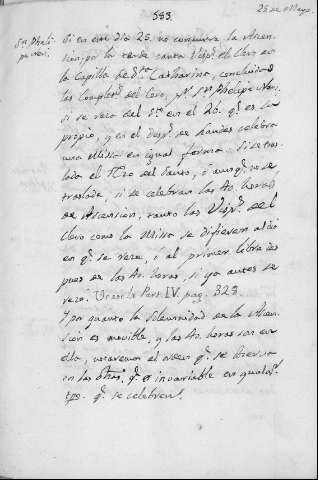 583.
25 de Mayo
Sn. Phelipe Neri.
Si en este dia 25. no concurre la Ascen-
sion, por la tarde canta Visp.s el Clero en
la Capilla de Sta. Catharina, concluidas
las Complet.s del Coro, pa. Sn. Phelipe Neri
si se reza del Sto. en el 26. qe. es su
propio, y en el desp.s de Laudes celebra
una Missa en igual forma. Si se tras-
lada el Rezo del Santo, ò aunqe. no se
traslade, si se celebran las 40. horas
de Ascension, tanto las Visp.s del
Clero como la Missa se difieren al dia
en qe. se reze, ò al primer libre des-
pues de las 40. horas, si ya antes se
rezó. Vease la Part. IV. pag. 323.
Y por quanto la Solemnidad de la Ascen-
sion es movible, y las 40. horas son en
ella, notaremos el orden qe. se observa
en las dhas. qe. es invariable en qualqr.
tpo. qe. se celebren.